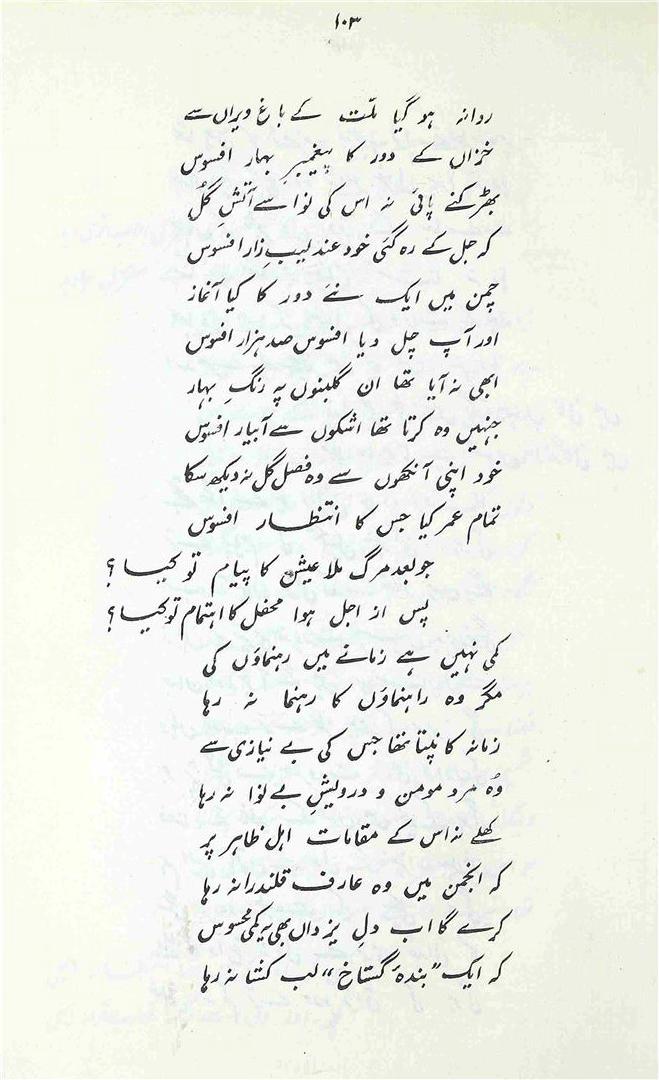 ۱۰۳
روانہ ہو گیا ملّت کے باغِ ویراں سے
خزاں کے دور کا پیغمبرِ بہار افسوس
بھڑکنے پائی نہ اس کی نوا سے آتشِ گُل
کہ جل کے رہ گئی خود عندلیبِ زار افسوس
چمن میں ایک نئے دور کا کیا آغاز
اور آپ چل دیا افسوس صد ہزار افسوس
ابھی نہ آیا تھا ان گلبنوں پہ رنگِ بہار
جنہیں وہ کرتا تھا اشکوں سے آبیار افسوس
خود اپنی آنکھوں سے وہ فصلِ گل نہ دیکھ سکا
تمام عمر کیا جس کا انتظار افسوس
جو بعد مرگ ملا عیش کا پیام تو کیا ؟
پس از اجل ہوا محفل کا اہتمام تو کیا ؟
کمی نہیں ہے زمانے میں رہنماؤں کی
مگر وہ راہنماؤں کا رہنما نہ رہا
زمانہ کانپتا تھا جس کی بے نیازی سے
وُہ مرد مومن و درویشِ بے نوا نہ رہا
کھلے نہ اس کے مقامات اہل ظاہر پر
کہ انجمن میں وہ عارف قلندرانہ رہا
کرے گا اب دلِ یزداں بھی یہ کمی محسوس
کہ ایک "بندۂ گستاخ" لب کشا نہ رہا